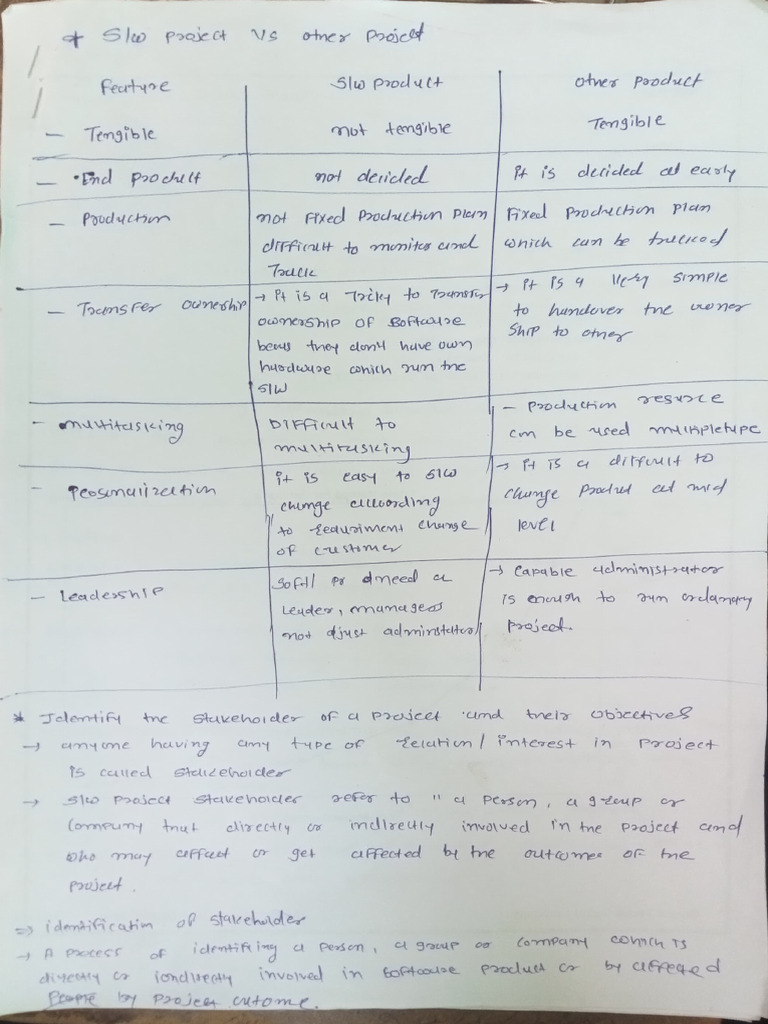 * S/w project vs other project
Feature
S/w product
other product
— Tengible
not tengible
Tengible
— •End product
not decided
it is decided at early
— production
not fixed production plan
difficult to monitor and
Track
Fixed production plan
which can be tracked
— Transfer ownership
→ it is a Tricky to Transfer
ownership of software
they don't have own
hardware which run the
S/W
→ it is a very simple
to handover the owner
ship to other
— multitasking
Difficult to
multitasking
— production resurce
can be used multipletype
— personalization
it is easy to S/W
change according
to requriment change
of customer
→ it is a difficult to
change product at mid
level
— Leadership
need a
Leader, managers
not djust adminstator
→ capable administrator
is enough to run ordanary
project.
* Identify the stakeholder of a project and their objectives
→ anyone having any type of relation/interest in project
is called stakeholder
→ S/w project stakeholder refer to " a person, a group or
company that directly or indirectly involved in the project and
who may affect or get affected by the outcomes of the
project.
⇒ identification of stakeholder
→ A process of identifing a person, a group or company which is
directly or iondirectly involved in software product or by affected
people by project outome.